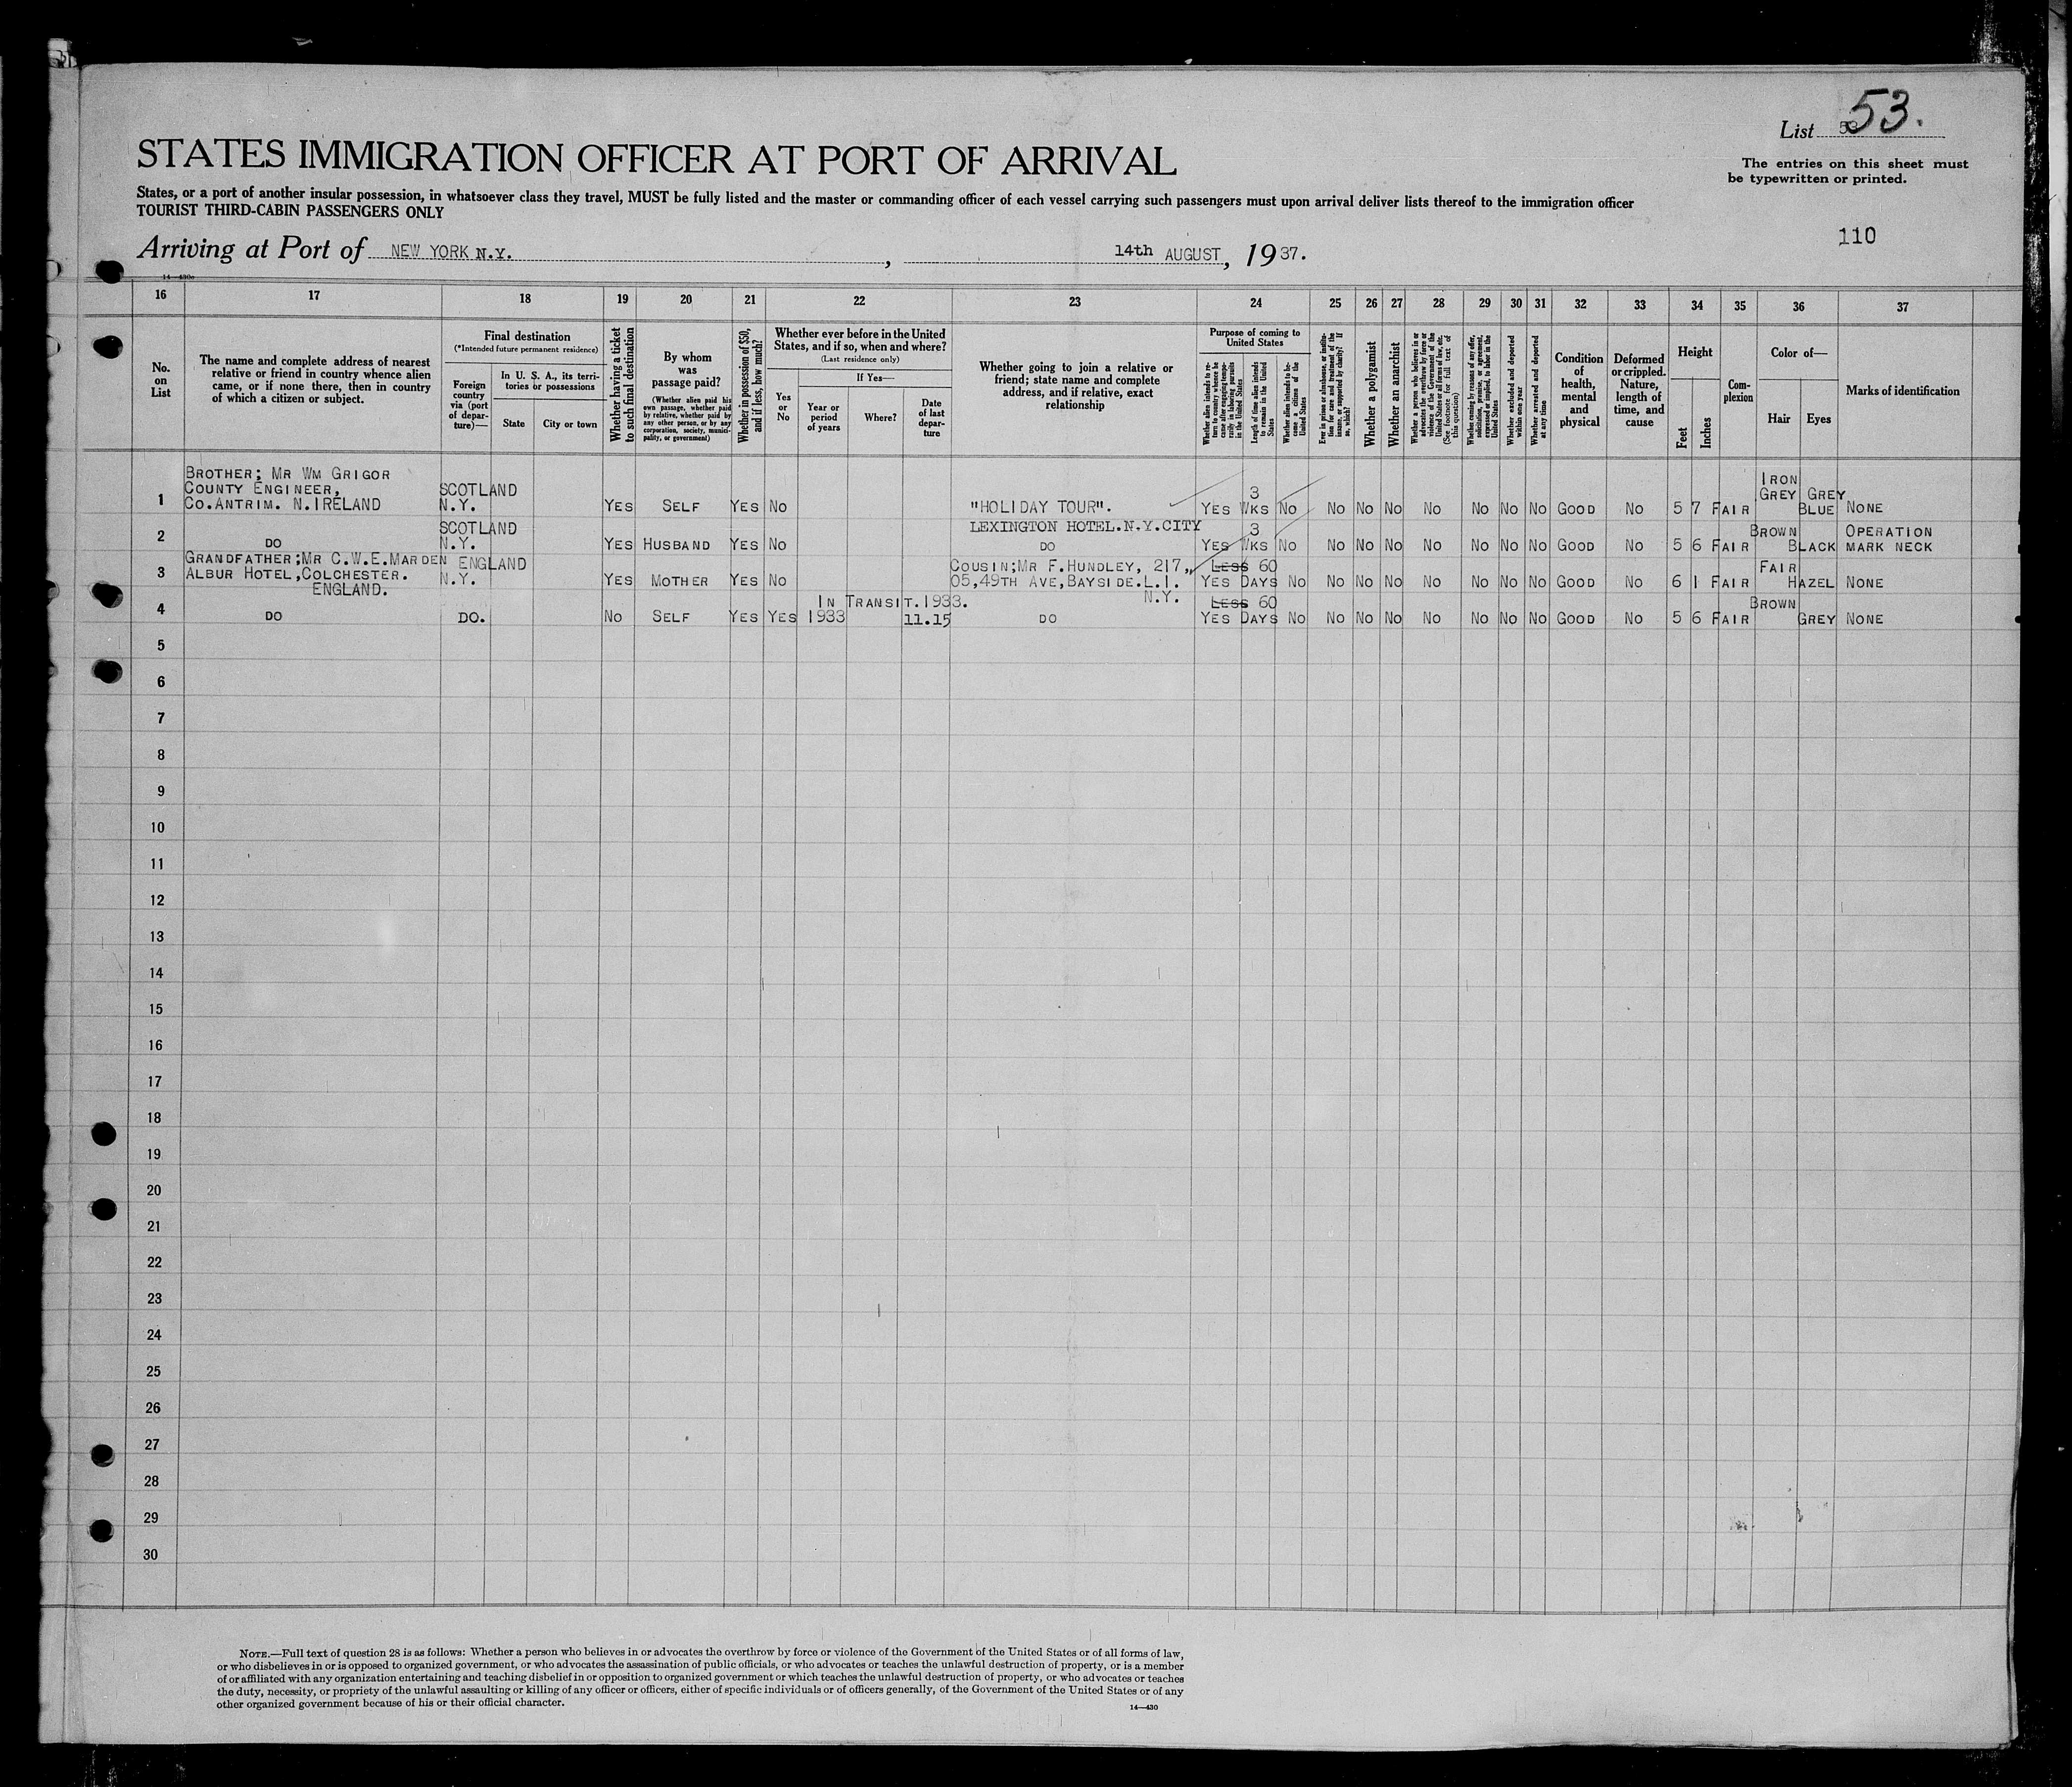 List 53 53.
STATES IMMIGRATION OFFICER AT PORT OF ARRIVAL
The entries on this sheet must
be typewritten or printed.
States, or a port of another insular possession, in whatsoever class they travel, MUST be fully listed and the master or commanding officer of each vessel carrying such passengers must upon arrival deliver lists thereof to the immigration officer
TOURIST THIRD-CABIN PASSENGERS ONLY
110
Arriving at Port of NEW YORK N.Y. , 14th AUGUST, 1937.
14—430c
16 17 18 19 20 21 22 23 24 25 26 27 28 29 30 31 32 33 34 35 36 37
No.
on
List
The name and complete address of nearest
relative or friend in country whence alien
came, or if none there, then in country
of which a citizen or subject.
Final destination
(*Intended future permanent residence)
Foreign
country
via (port
of depar-
ture)—
In U. S. A., its terri-
tories or possessions
State
City or town
Whether having a ticket
to such final destination
By whom
was
passage paid?
(Whether alien paid his
own passage, whether paid
by relative, whether paid by
any other person, or by any
corporation, society, munici-
pality, or government)
Whether in possession of $50,
and if less, how much?
Whether ever before in the United
States, and if so, when and where?
(Last residence only)
Yes
or
No
If Yes—
Year or
period
of years
Where?
Date
of last
depar-
ture
Whether going to join a relative or
friend; state name and complete
address, and if relative, exact
relationship
Purpose of coming to
United States
Whether alien intends to re-
turn to country whence he
came after engaging tempo-
rarily in laboring pursuits
in the United States
Length of time alien intends
to remain in the United
States
Whether alien intends to be-
come a citizen of the
United States
Ever in prison or almshouse, or institu-
tion for care and treatment of the
insane, or supported by charity? If
so, which?
Whether a polygamist
Whether an anarchist
Whether a person who believes in or
advocates the overthrow by force or
violence of the Government of the
United States or all forms of law, etc.
(See footnote for full text of
this question)
Whether coming by reasons of any offer,
solicitation, promise, or agreement,
expressed or implied, to labor in the
United States
Whether excluded and deported
within one year
Whether arrested and deported
at any time
Condition
of
health,
mental
and
physical
Deformed
or crippled.
Nature,
length of
time, and
cause
Height
Feet
Inches
Com-
plexion
Color of—
Hair
Eyes
Marks of identification
BROTHER; MR WM GRIGOR
COUNTY ENGINEER, SCOTLAND 3 IRON
GREY GREY
1 CO.ANTRIM. N.IRELAND N.Y. YES SELF YES NO "HOLIDAY TOUR". YES WKS NO NO NO NO NO NO NO NO GOOD NO 5 7 FAIR BLUE NONE
SCOTLAND LEXINGTON HOTEL.N.Y.CITY 3 BROWN OPERATION
2 DO N.Y. YES HUSBAND YES NO DO YES WKS NO NO NO NO NO NO NO NO GOOD NO 5 6 FAIR BLACK MARK NECK
GRANDFATHER;MR C.W.E.MARDEN ENGLAND COUSIN;MR F.HUNDLEY, 217, LESS 60 FAIR
3 ALBUR HOTEL,COLCHESTER. N.Y. YES MOTHER YES NO 05,49TH AVE,BAYSIDE.L.I. YES DAYS NO NO NO NO NO NO NO NO GOOD NO 6 1 FAIR HAZEL NONE
ENGLAND. N.Y.
IN TRANSIT.1933. LESS 60 BROWN
4 DO DO. NO SELF YES YES 1933 11.15 DO YES DAYS NO NO NO NO NO NO NO NO GOOD NO 5 6 FAIR GREY NONE
5
6
7
8
9
10
11
12
13
14
15
16
17
18
19
20
21
22
23
24
25
26
27
28
29
30
NOTE.—Full text of question 28 is as follows: Whether a person who believes in or advocates the overthrow by force or violence of the Government of the United States or of all forms of law,
or who disbelieves in or is opposed to organized government, or who advocates the assassination of public officials, or who advocates or teaches the unlawful destruction of property, or is a member
of or affiliated with any organization entertaining and teaching disbelief in or opposition to organized government or which teaches the unlawful destruction of property, or who advocates or teaches
the duty, necessity, or propriety of the unlawful assaulting or killing of any officer or officers, either of specific individuals or of officers generally, of the Government of the United States or of any
other organized government because of his or their official character.
14—430